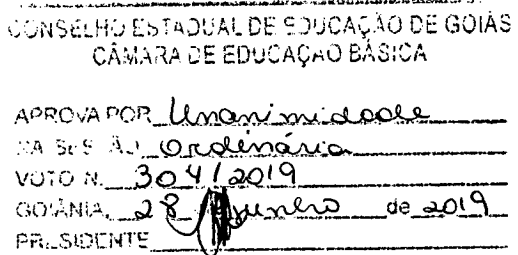 CONSELHO ESTADUAL DE EDUCAÇÃO DE GOIÁS
CÂMARA DE EDUCAÇÃO BÁSICA
APROVA POR Unanimidade
NA SESSÃO Ordinária
VOTO N. 304/2019
GOIÂNIA, 28 junho de 2019
PRESIDENTE